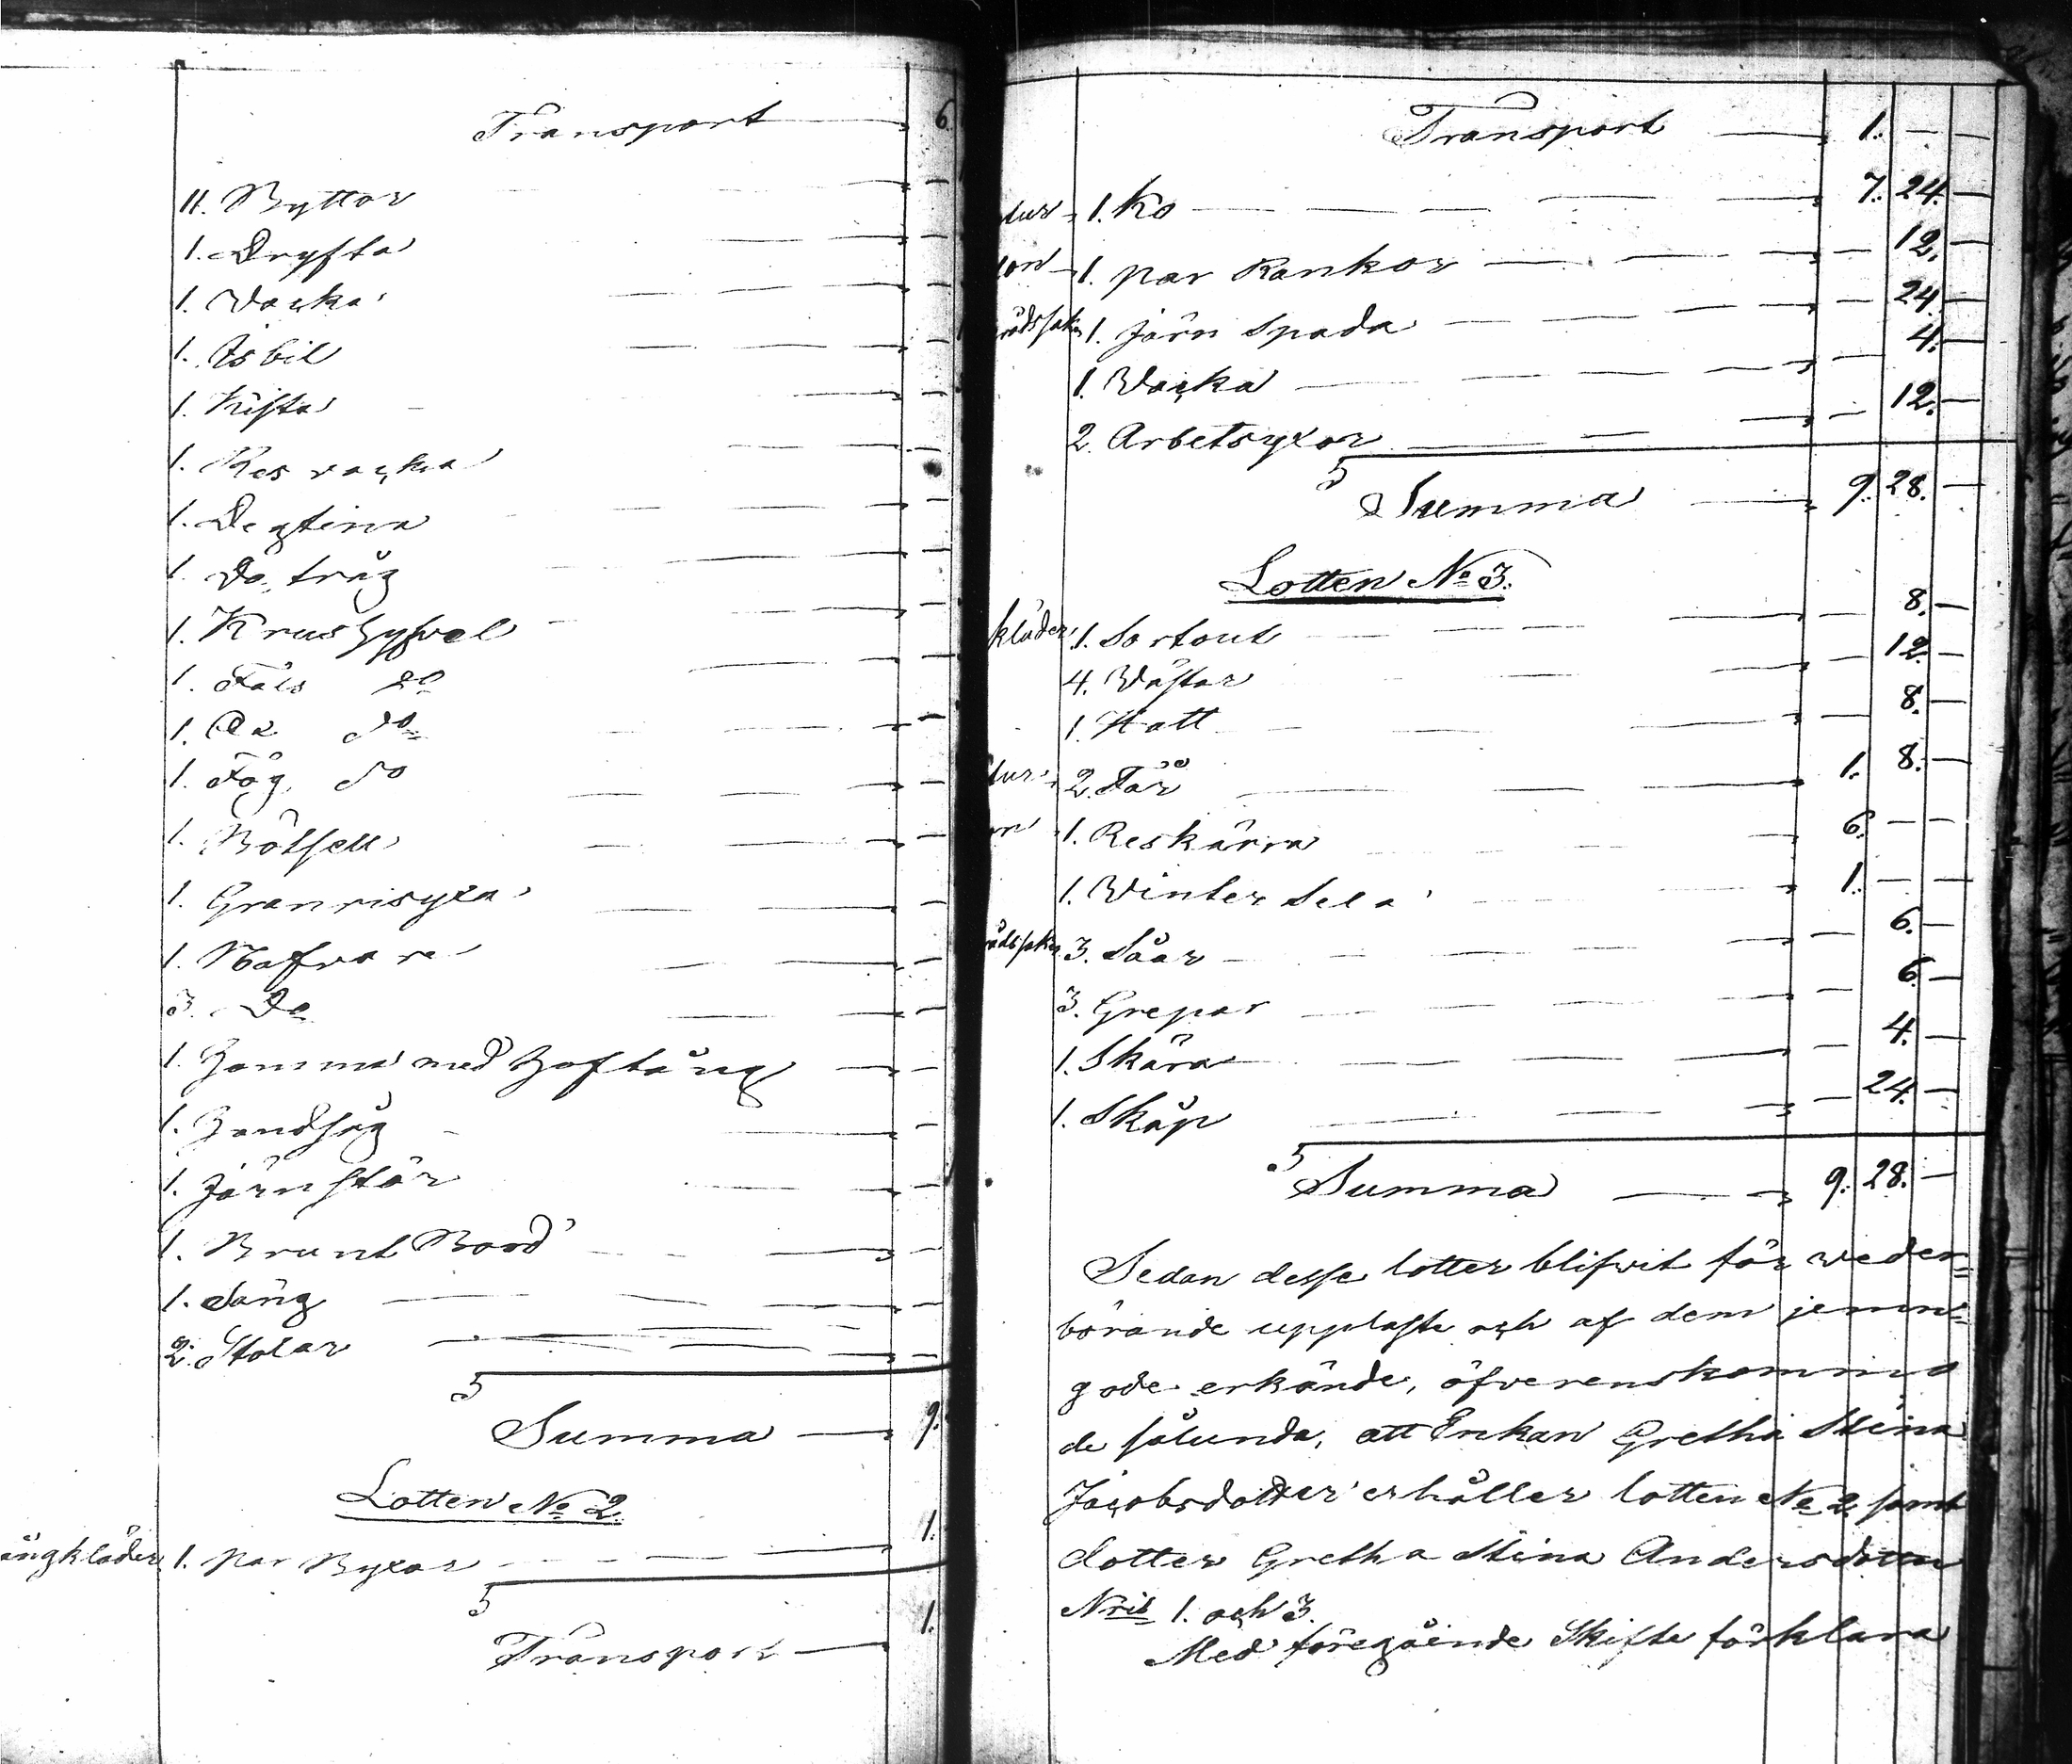 Transport — 6.
11. Byttor
1. Dryfta
1. Wacka
1. Isbil
1. Kista
1. Res vacka
1. Degtina
1. Do tråg
1. Krushyfvel
1. Fals do
1. Ox do
1. Fog do
1. Båtsell
1. Granrisyxa
1. Nafvare
3. Do
1. Hammare med Hoftång
1. Handsåg
1. Järnstör
1. Brunt Bord
1. Säng
2. Stolar
Summa — 9.
Lotten No 2.
ångkläder 1. par Byxor — 1.
Transport — 1.
Transport — 1. — —
tur 1. Ko — 7. 24. —
on 1. par Kankor — — 12. —
rådssaker 1. Järn Spada — — 24. —
1. Wacka — — 4. —
2. Arbetsyxor — — 12. —
Summa — 9. 28. —
Lotten No 3.
kläder 1. Sortout — — 8. —
4. Wästar — — 12. —
1. Hatt — — 8. —
tur 2. Får — 1. 8. —
on 1. Reskärra — 6. — —
1. Winter Sela — 1. — —
rådssaker 3. Såar — — 6. —
3. Grepar — — 6. —
1. Skära — — 4. —
1. Skåp — — 24. —
Summa — 9. 28. —
Sedan desse lotter blifvit för weder=
börande uppläste och af dem jemn=
gode erkände, öfverenskommo
de sålunda, att Enkan Gretha Stina
Jacobsdotter erhåller lotten No 2 samt
dotter Gretha Stina Andersdotter
Nris 1. och 3.
Med föregående Skifte förklara